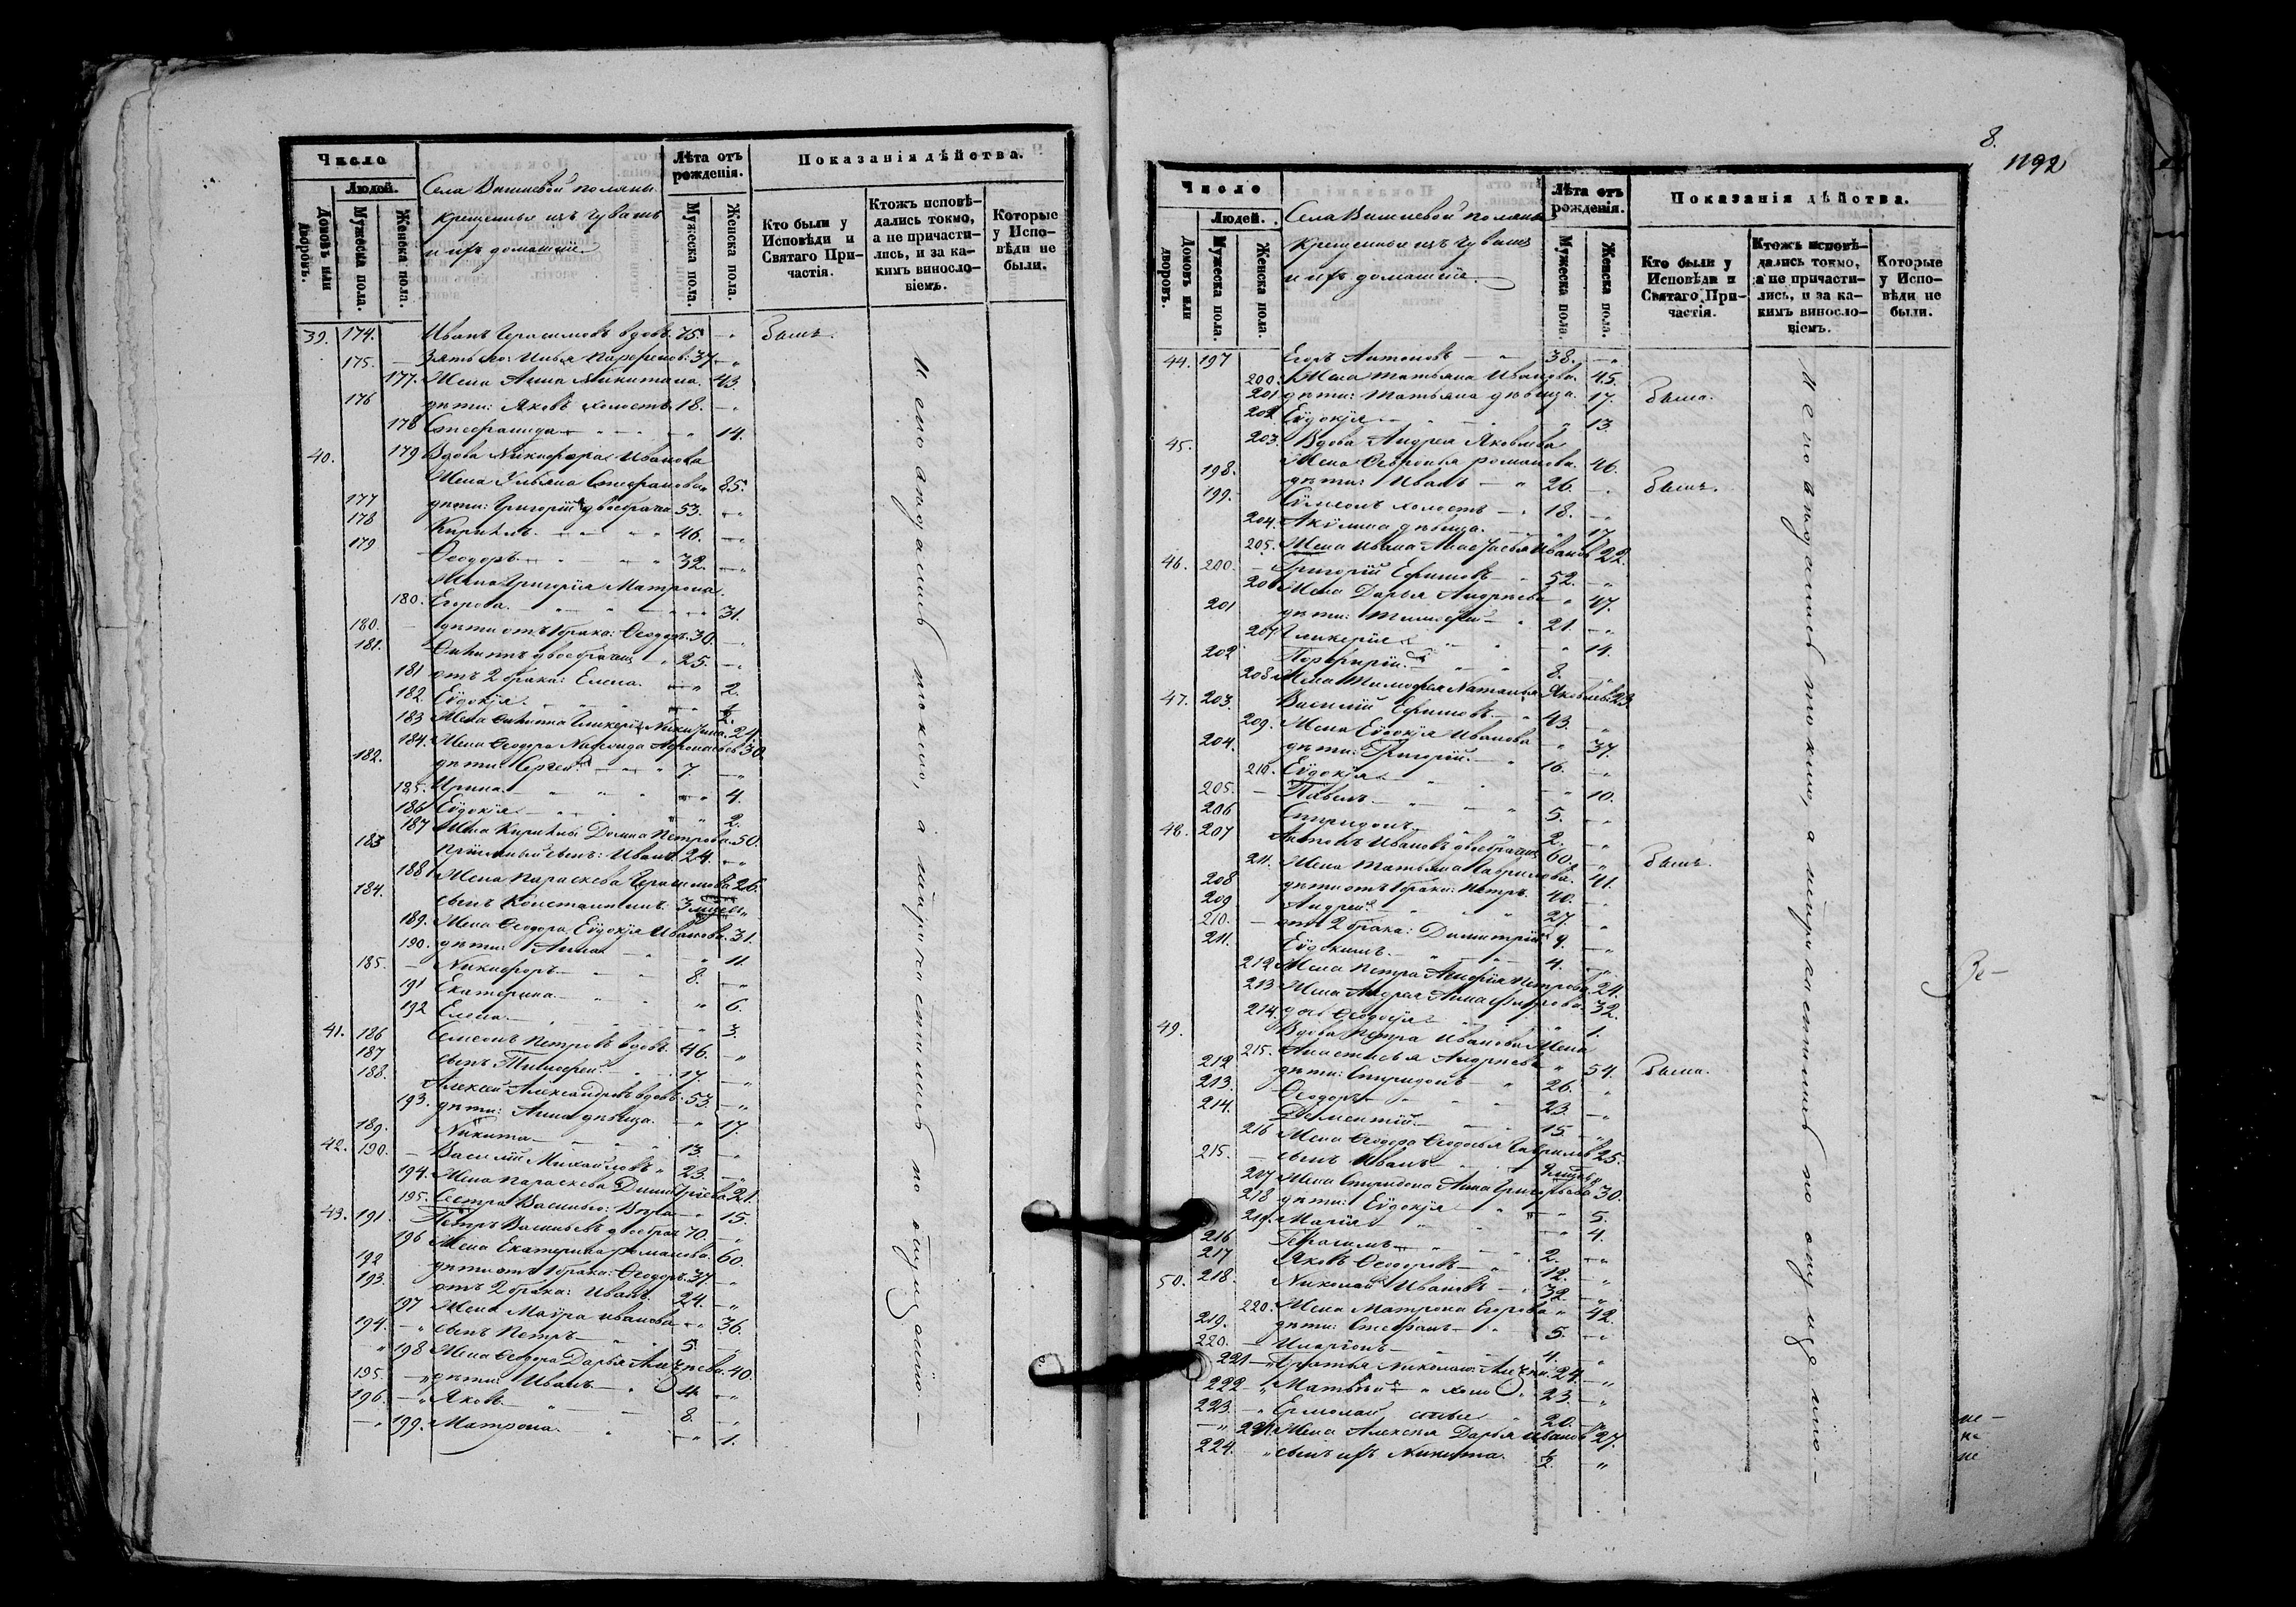 Число
Людей.
Домовъ или дворовъ.
Мужеска пола.
Женска пола.
Села Вишневой поляны
крещенные изъ Чувашъ
и ихъ домашніе
Лѣта отъ рожденія.
Мужеска пола.
Женска пола.
Показанія дѣйства.
Кто были у Исповѣди и Святаго Причастія.
Ктожъ исповѣдались токмо, а не причастились, и за какимъ винословіемъ.
Которые у Исповѣди не были.
39. 174. Иванъ Герасимовъ вдовъ. 75. Былъ.
175. Зять его: Илья Парфеновъ. 37
177. Жена Анна Никитина. 43.
176 дѣти: Яковъ холостъ 18.
178 Стефанида 14.
40. 179 Вдова Никифора Иванова
Жена Ульяна Стефанова 85.
177 дѣти: Григорій двоебрачн 53.
178 Кириллъ. 46.
179 Ѳеодоръ 32.
Жена Григорія Матрона
180. Егорова. 31.
180. дѣти отъ 1 брака: Ѳеодоръ. 30.
181. двоебрачн 25.
181 отъ 2 брака: Елена. 2.
182. Евдокія. ½.
183 Жена Гликерія Никитина. 24.
184. Жена Ѳеодора 30.
182. дѣти: Сергей 7.
185. Ирина 4.
186 Евдокія 2.
187 Жена Кирилы Домна Петрова. 50.
183 пріемный сынъ: Иванъ. 24.
188 Жена Параскева Герасимова 26.
184. сынъ Константинъ. 3 мѣсяц
189. Жена Ѳеодора Евдокія Иванова. 31.
190. дѣти: Анна 11.
185. Никифоръ 8.
191 Екатерина 6.
192 Елена 3.
41. 186 Симеонъ Петровъ вдовъ. 46.
187 сынъ Тимофей 17.
188. Алексей Александровъ вдовъ. 53.
193. дѣти: Анна дѣвица. 17.
189. Никита 13.
42. 190. Василій Михайловъ 23.
194. Жена Параскева Димитріева. 21.
195. Сестра Василью: Вѣра 15.
43. 191. Петръ Васильевъ двоебрач 70.
196 Жена Екатерина Романова. 60.
192 дѣти отъ 1 брака: Ѳеодоръ. 37
193. отъ 2 брака: Иванъ. 24.
197 Жена Мавра Иванова 36.
194. сынъ Петръ 5.
198 Жена Ѳеодора Дарья Алексѣева. 40.
195. дѣти: Иванъ 14.
196. Яковъ 8.
199. Матрона. 1.
Исповѣдались токмо, а не причастились по опущенію.
8.
1192
Число
Людей.
Домовъ или дворовъ.
Мужеска пола
Женска пола.
Села Вишневой поляны
крещенные изъ Чувашъ
и ихъ домашніе
Лѣта отъ рожденія.
Мужеска пола.
Женска пола.
Показанія дѣйства.
Кто были у Исповѣди и Святаго Причастія.
Ктожъ исповѣдались токмо, а не причастились, и за какимъ винословіемъ.
Которые у Исповѣди не были.
44. 197 Егоръ Антоновъ 38.
200. Жена Татьяна Иванова. 45.
201 дѣти: Татьяна дѣвица. 17. Была.
202 Евдокія 13.
45. 203. Вдова Андрея Яковлева
Жена Ѳевронья Романова. 46.
198. дѣти: Иванъ 26. Былъ.
199. Симеонъ холостъ 18.
204. Акулина дѣвица. 17.
205. Жена Ивана Анастасья Иванов 22.
46. 200. Григорій Ефимовъ 52.
206 Жена Дарья Андреева 47.
201 дѣти: Тимофей 21.
207 Гликерія 14.
202 Порфирій. 8.
208 Жена Тимофея Наталья Яковлева. 23
47. 203. Василій Ефимовъ. 43.
209. Жена Евдокія Иванова 37.
204. дѣти: Григорій. 16.
210. Евдокія 10.
205. Павелъ 5.
206 Спиридонъ 2.
48. 207 Антонъ Ивановъ двоебрачн 60. Былъ.
211. Жена Татьяна Гаврилова. 41.
208 дѣти отъ 1 брака: Петръ. 40.
209 Андрей 27.
210. отъ 2 брака: Димитрій 9.
211. Евдокимъ. 4.
212 Жена Петра Петрова 24.
213 Жена Андрея Анна 32.
214. дочь Ѳеодосія 1.
49. Вдова Петра Иванова Жена
215. Анастасья Андреева 54. Была.
212 дѣти: Спиридонъ 26.
213. Ѳеодоръ 23.
214. Дементій 15.
216 Жена Ѳеодора Ѳеодосья Гаврилов 25.
215. сынъ Иванъ
217 Жена Спиридона Анна Григорьева 30.
218 дѣти: Евдокія 5.
219. Марія 4.
216 Герасимъ 2.
217 Яковъ Ѳеодоровъ 12.
50. 218. Николай Ивановъ 32.
220. Жена Матрона Егорова 42.
219. дѣти: Стефанъ 5.
220. Иларіонъ 4.
221 Братья Николаю: Алексѣй. 24.
222 Матвѣй холо 23.
223. Ермолай стые 20.
221. Жена Алексѣя Дарья Иванов 27.
224. сынъ ихъ Никита. ½.
Исповѣдались токмо, а не причастились по опущенію.